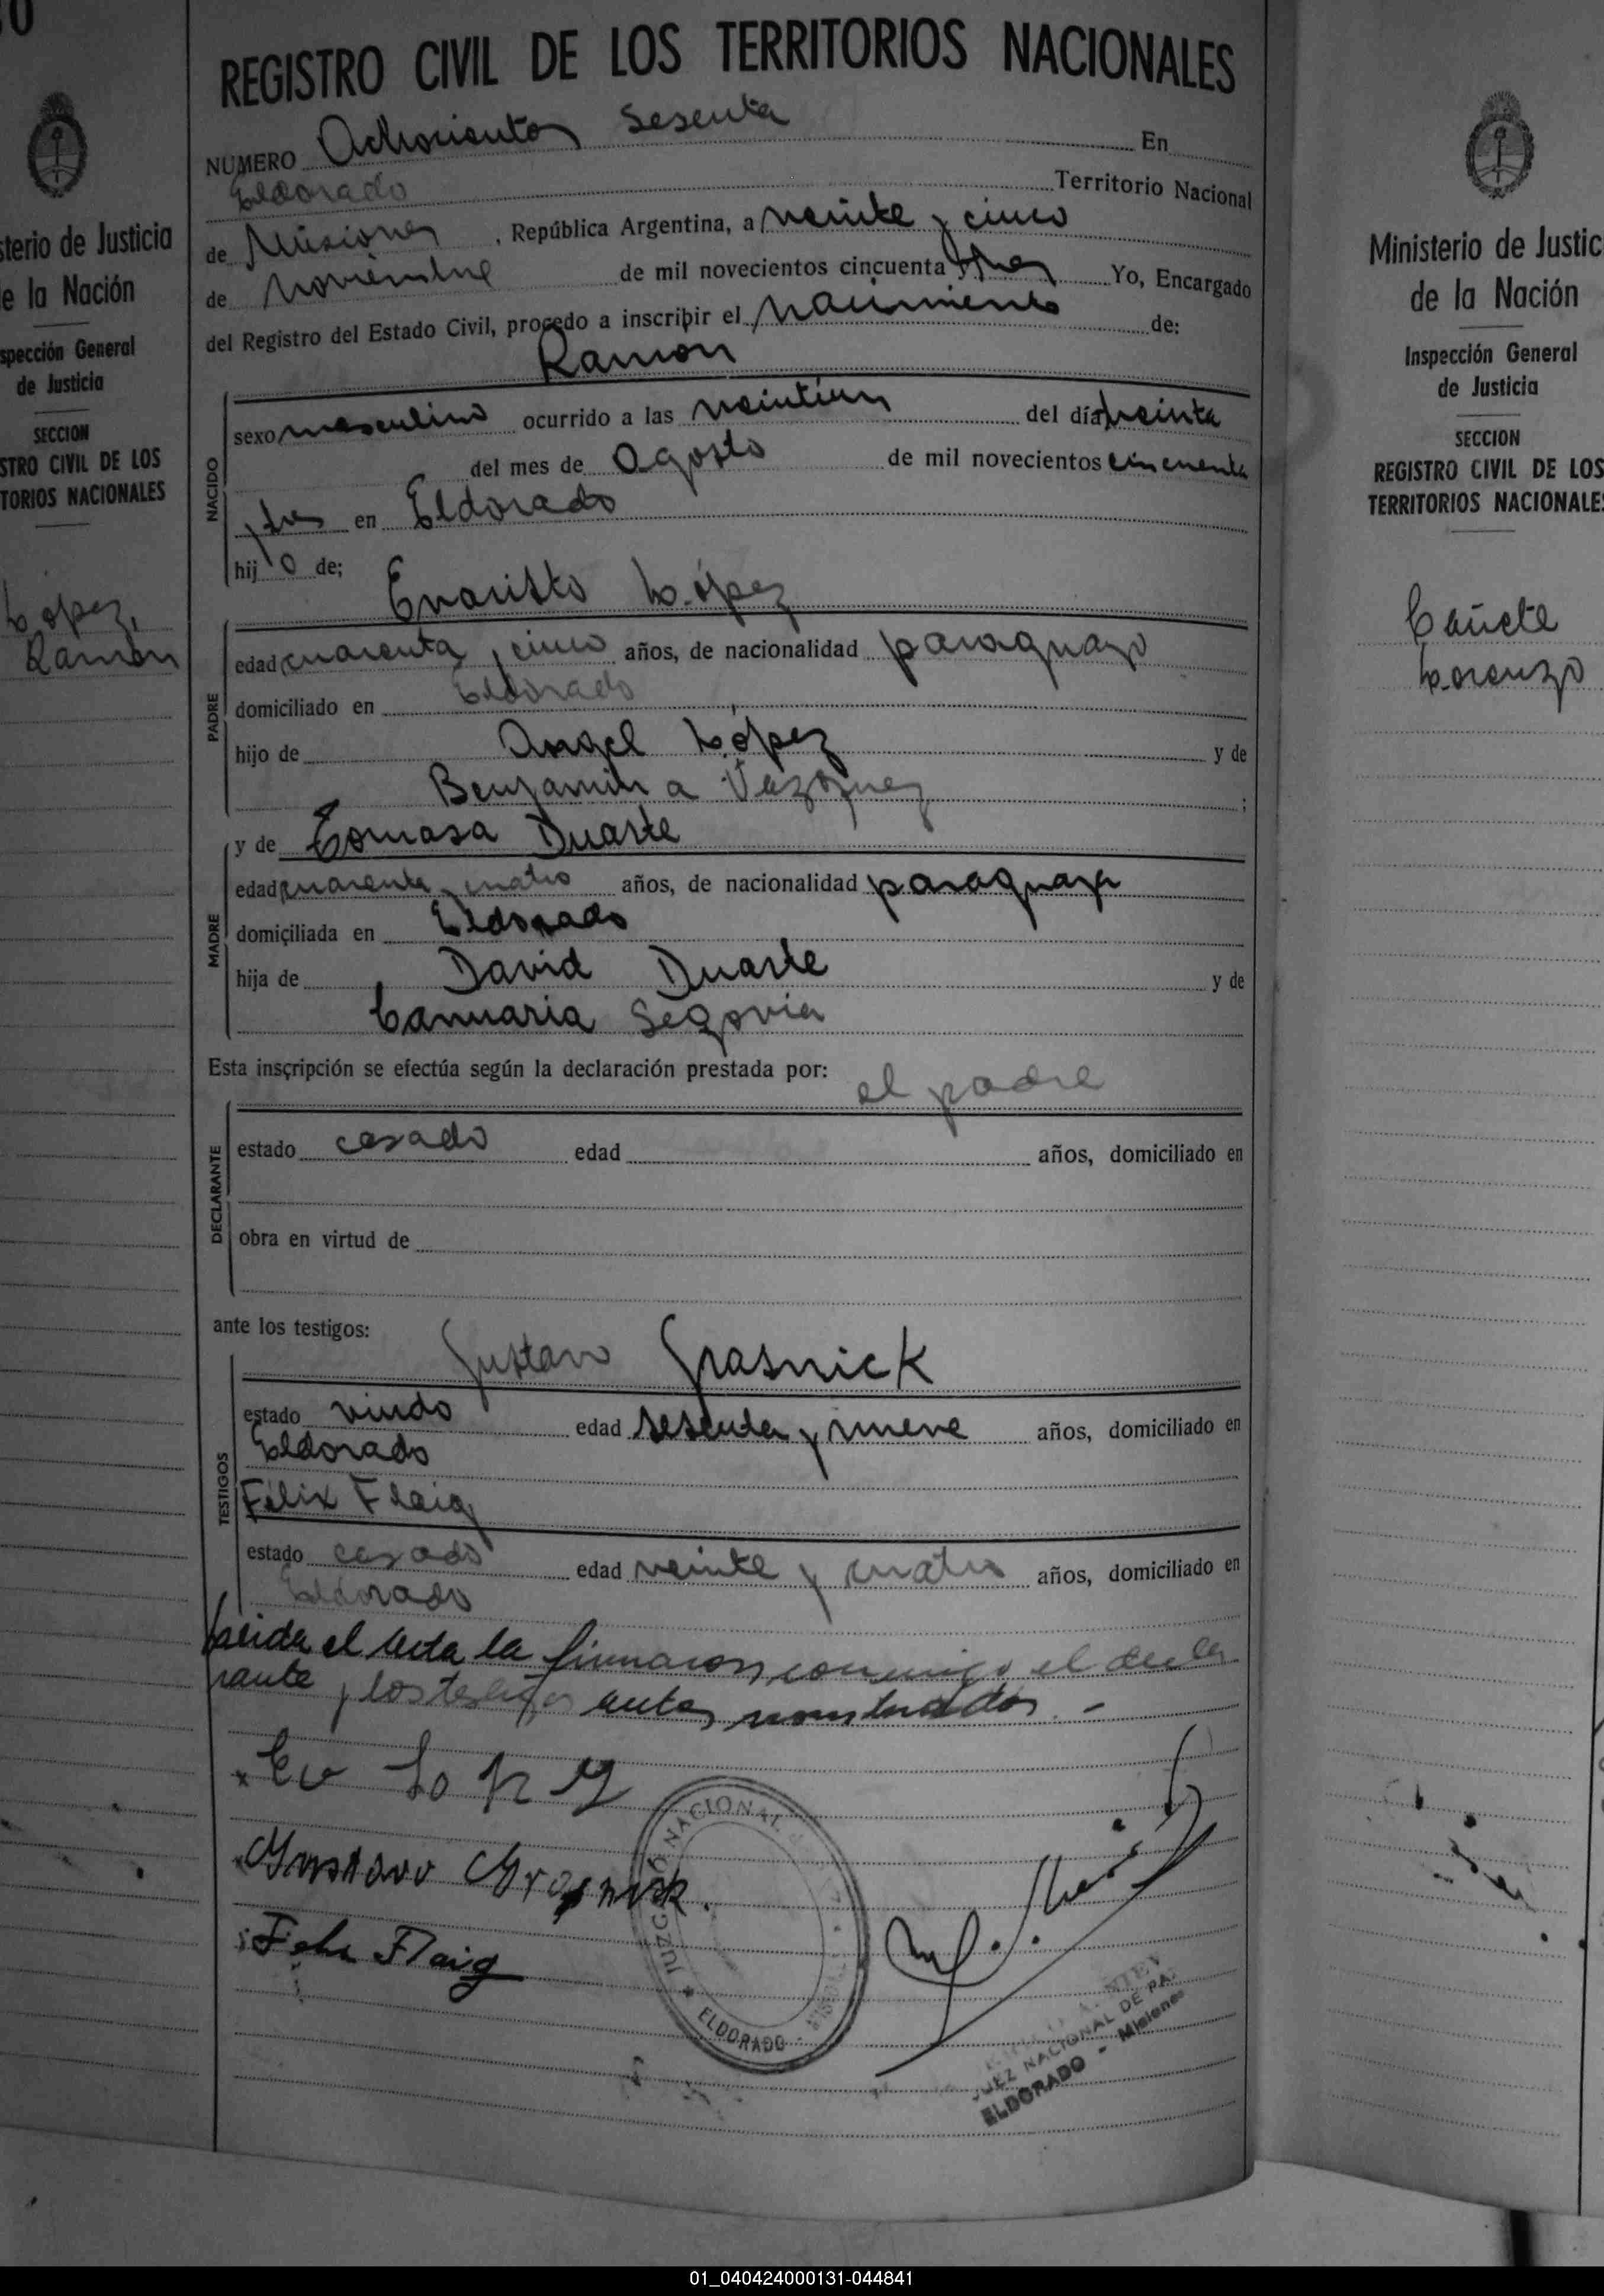 REGISTRO CIVIL DE LOS TERRITORIOS NACIONALES
NUMERO Ochocientos Sesenta En
Eldorado Territorio Nacional
de Misiones, República Argentina, a veinte y cinco
de Noviembre de mil novecientos cincuenta y tres Yo, Encargado
del Registro del Estado Civil, procedo a inscribir el nacimiento de:
Ramon
NACIDO
sexo masculino ocurrido a las veintiun del día treinta
del mes de Agosto de mil novecientos cincuenta
y tres en Eldorado
hijo de;
Evaristo López
PADRE
edad cuarenta y cinco años, de nacionalidad paraguayo
domiciliado en Eldorado
hijo de Angel López y de
Benjamina Vazquez ;
y de Tomasa Duarte
MADRE
edad cuarenta y cuatro años, de nacionalidad paraguaya
domiciliada en Eldorado
hija de David Duarte y de
Segovia
Esta inscripción se efectúa según la declaración prestada por: el padre
DECLARANTE
estado casado edad años, domiciliado en
obra en virtud de
ante los testigos:
Gustavo Grasnick
TESTIGOS
estado viudo edad sesenta y nueve años, domiciliado en
Eldorado
Félix Flaig
estado casado edad veinte y cuatro años, domiciliado en
Eldorado
Leida el acta la firmaron conmigo el decla
rante y los testigos antes nombrados. -
Ev Lopez
Gustavo Grasnick.
Felix Flaig
JUZGADO NACIONAL
ELDORADO
JUEZ NACIONAL DE PAZ
ELDORADO - Misiones
sterio de Justicia
e la Nación
spección General
de Justicia
SECCION
STRO CIVIL DE LOS
TORIOS NACIONALES
López,
Ramón
Ministerio de Justic
de la Nación
Inspección General
de Justicia
SECCION
REGISTRO CIVIL DE LOS
TERRITORIOS NACIONALES
Cañete
Lorenzo
01_040424000131-044841